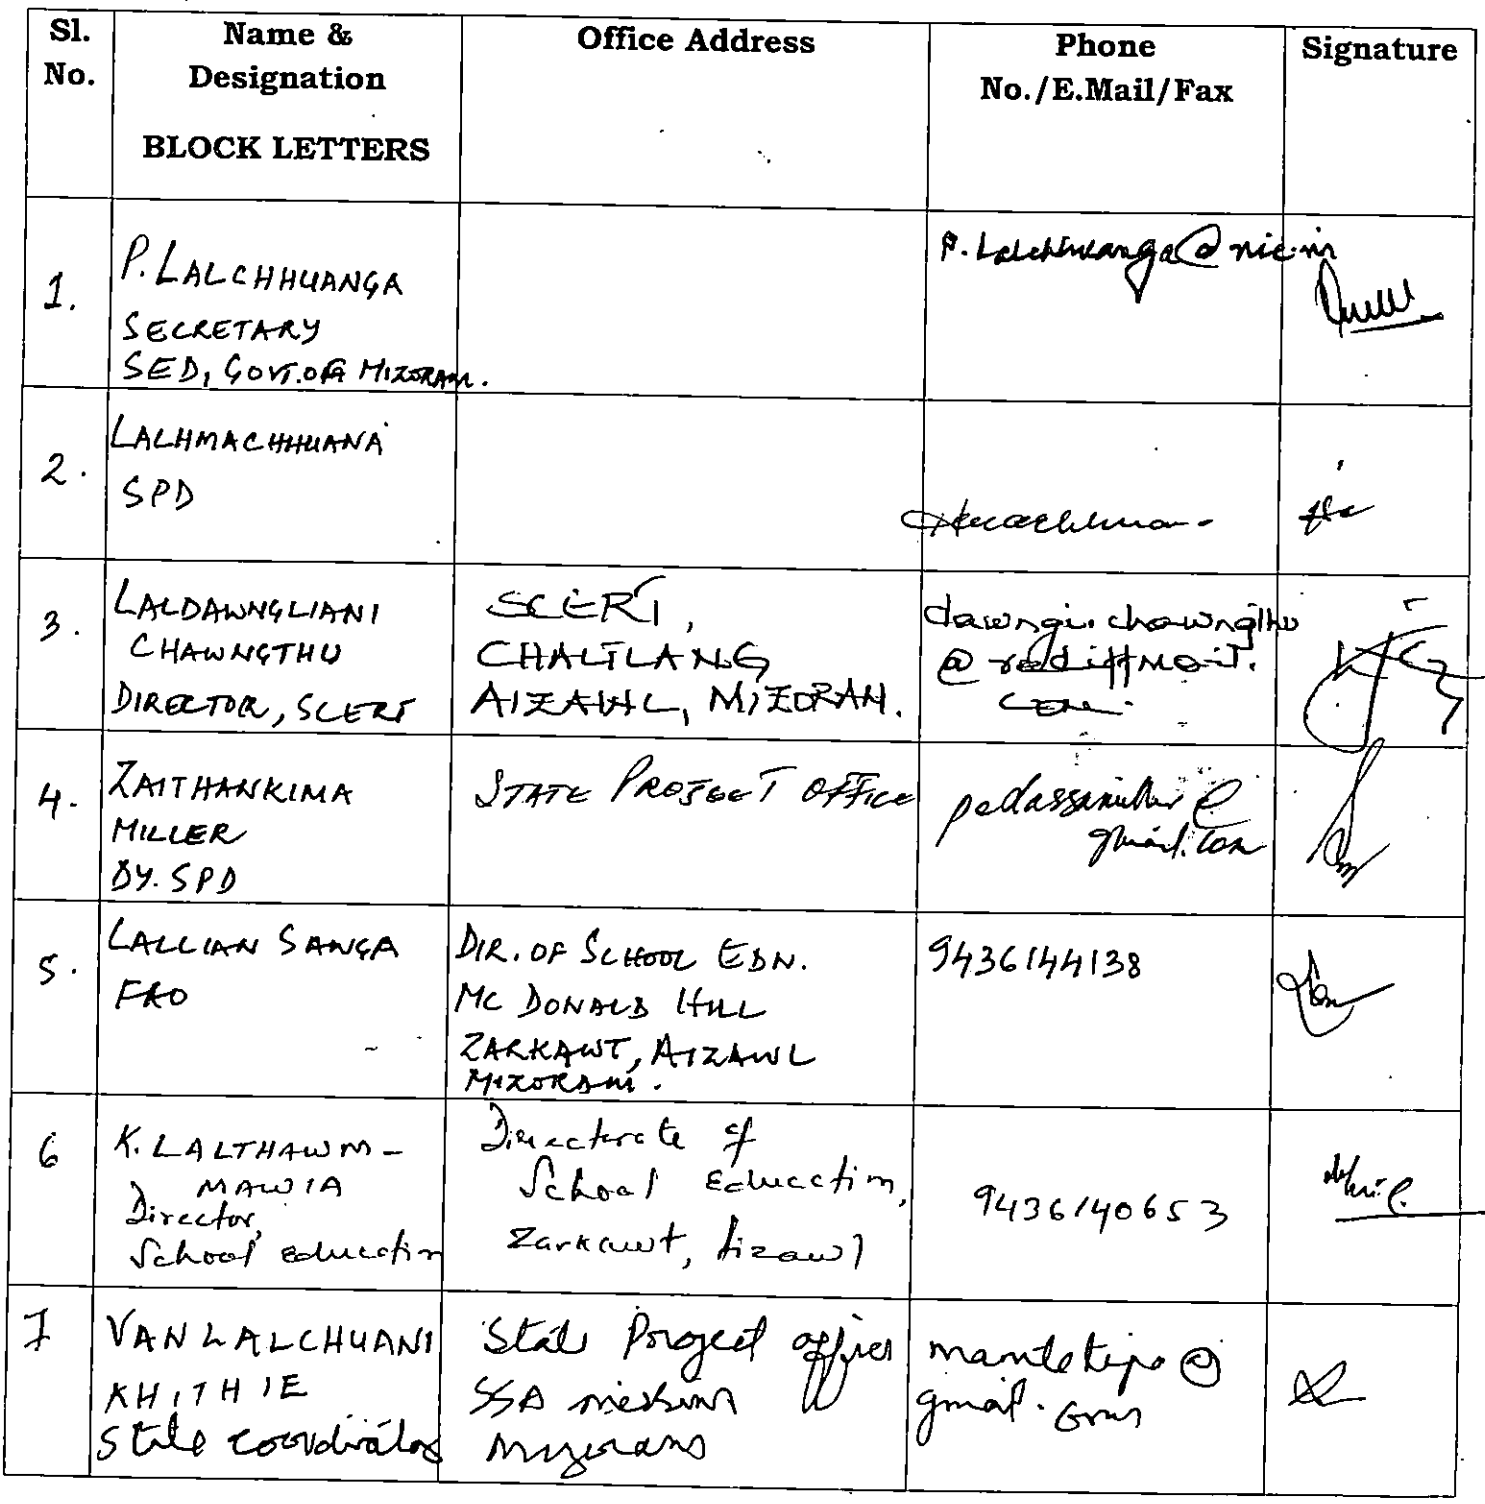 Sl. No.
Name & Designation
BLOCK LETTERS
Office Address
Phone No./E.Mail/Fax
Signature
1.
P. LALCHHUANGA
SECRETARY
SED, GOVT. OF MIZORAM.
P.Lalchhuanga@nic.in
2.
LALHMACHHUANA
SPD
3.
LALDAWNGLIANI
CHAWNGTHU
DIRECTOR, SCERT
SCERT,
CHALTLANG
AIZAWL, MIZORAM.
dawngi.chawngthu
@rediffmail.
com.
4.
ZAITHANKIMA
MILLER
DY. SPD
STATE PROJECT OFFICE
gmail.com
5.
LALLIAN SANGA
FAO
DIR. OF SCHOOL EDN.
MC DONALD HILL
ZARKAWT, AIZAWL
MIZORAM.
9436144138
6
K. LALTHAWM-
MAWIA
Director,
School education
Directorate of
School Education,
Zarkawt, Aizawl
9436140653
7
VANLALCHUANI
KHITHIE
State coordinator
State Project office
SSA mission
Mizoram
gmail.com